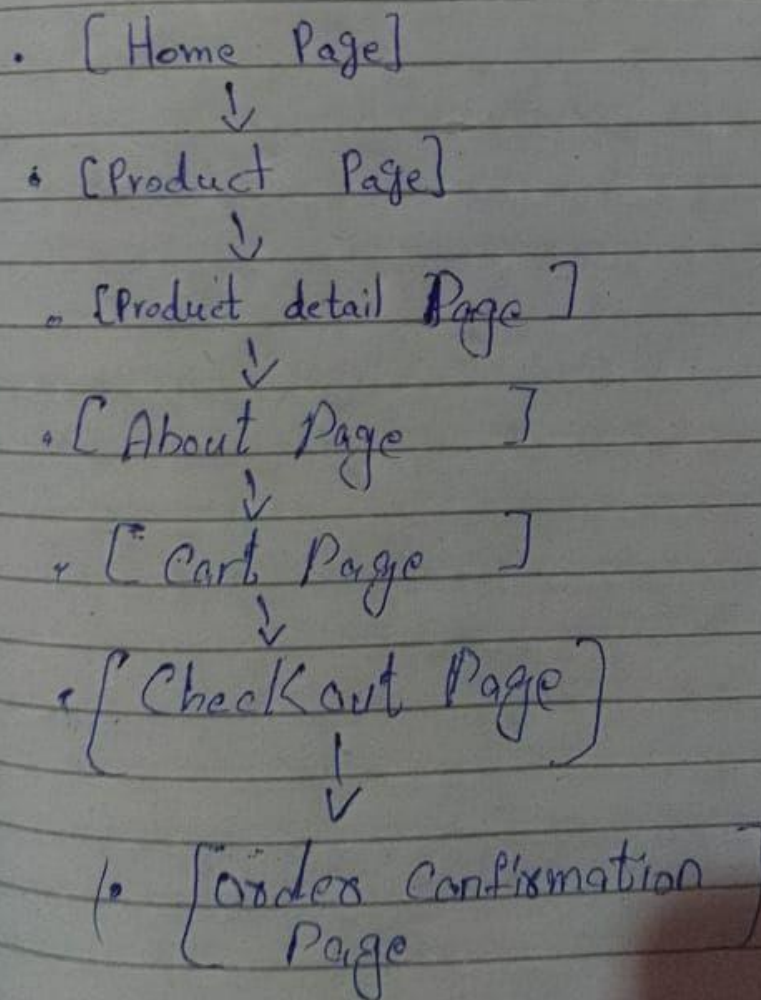 . [Home Page]
↓
. [Product Page]
↓
. [Product detail Page]
↓
. [About Page ]
↓
. [Cart Page ]
↓
. [Checkout Page]
↓
. [order Confirmation
Page